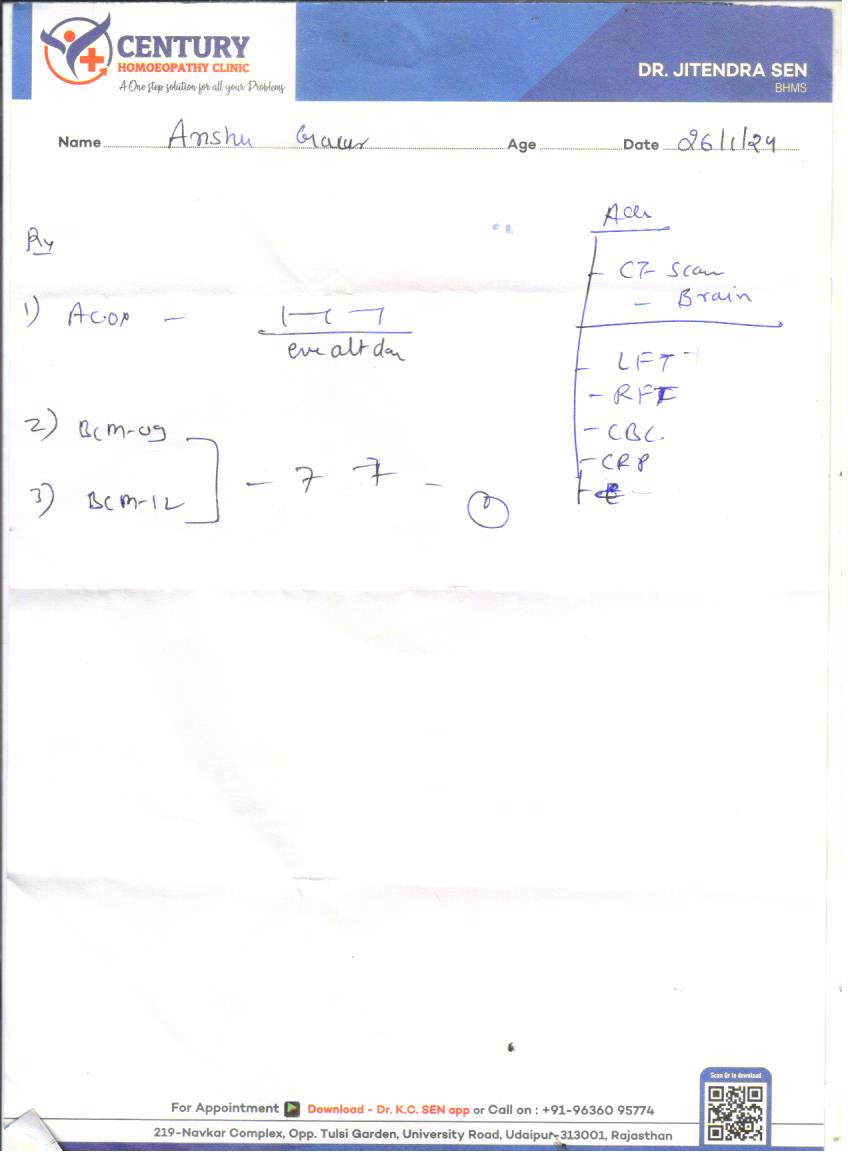 CENTURY
HOMOEOPATHY CLINIC
A One step solution for all your Problems
DR. JITENDRA SEN
BHMS
Name Anshu Age Date 26/1/24
Rx
1) ACOR -
eve alt day
2) BCM-09
3) BCM-12
- 7 7 -
Adv
- CT- Scan
- Brain
- LFT -
- RFT
- CBC.
- CRP
Scan Qr to download
For Appointment Download - Dr. K.C. SEN app or Call on : +91-96360 95774
219-Navkar Complex, Opp. Tulsi Garden, University Road, Udaipur-313001, Rajasthan